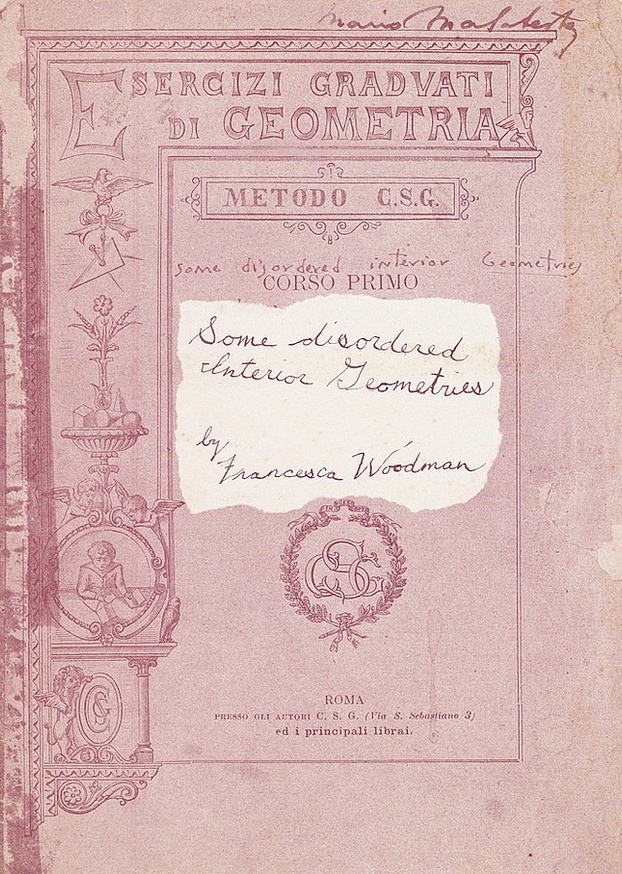 Mario Malabesta
ESERCIZI GRADVATI
DI GEOMETRIA
METODO C.S.G.
some disordered interior Geometries
CORSO PRIMO
Some disordered
Interior Geometries
by
Francesca Woodman
CSG
CSG
ROMA
PRESSO GLI AUTORI C. S. G. (Via S. Sebastiano 3)
ed i principali librai.